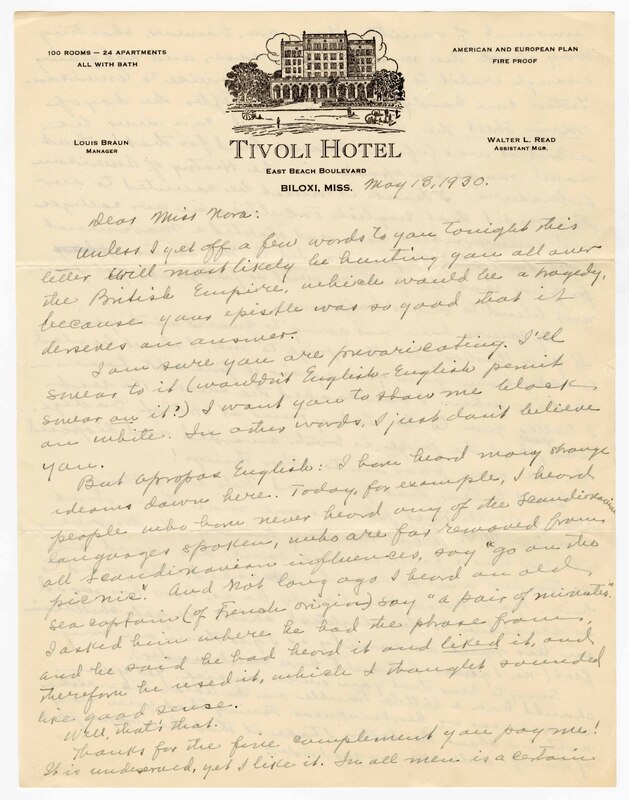 100 ROOMS — 24 APARTMENTS
ALL WITH BATH
AMERICAN AND EUROPEAN PLAN
FIRE PROOF
LOUIS BRAUN
MANAGER
WALTER L. READ
ASSISTANT MGR.
TIVOLI HOTEL
EAST BEACH BOULEVARD
BILOXI, MISS. May 13, 1930.
Dear Miss Nora:
Unless I get off a few words to you tonight this
letter will most likely be hunting you all over
the British Empire, which would be a tragedy,
because your epistle was so good that it
deserves an answer.
I am sure you are prevaricating. I'll
swear to it (wouldn't English-English permit
swear on it?) I want you to show me black
on white. In other words, I just don't believe
you.
But apropos English: I have heard many strange
idioms down here. Today, for example, I heard
people who have never heard any of the Scandinavian
languages spoken, who are far removed from
all Scandinavian influences, say "go on the
picnic." And not long ago I heard an old
sea captain (of French origin) say "a pair of minutes".
I asked him where he had the phrase from,
and he said he had heard it and liked it, and
therefore he used it, which I thought sounded
like good sense.
Well, that's that.
Thanks for the fine complement you pay me!
It is undeserved, yet I like it. In all men is a certain